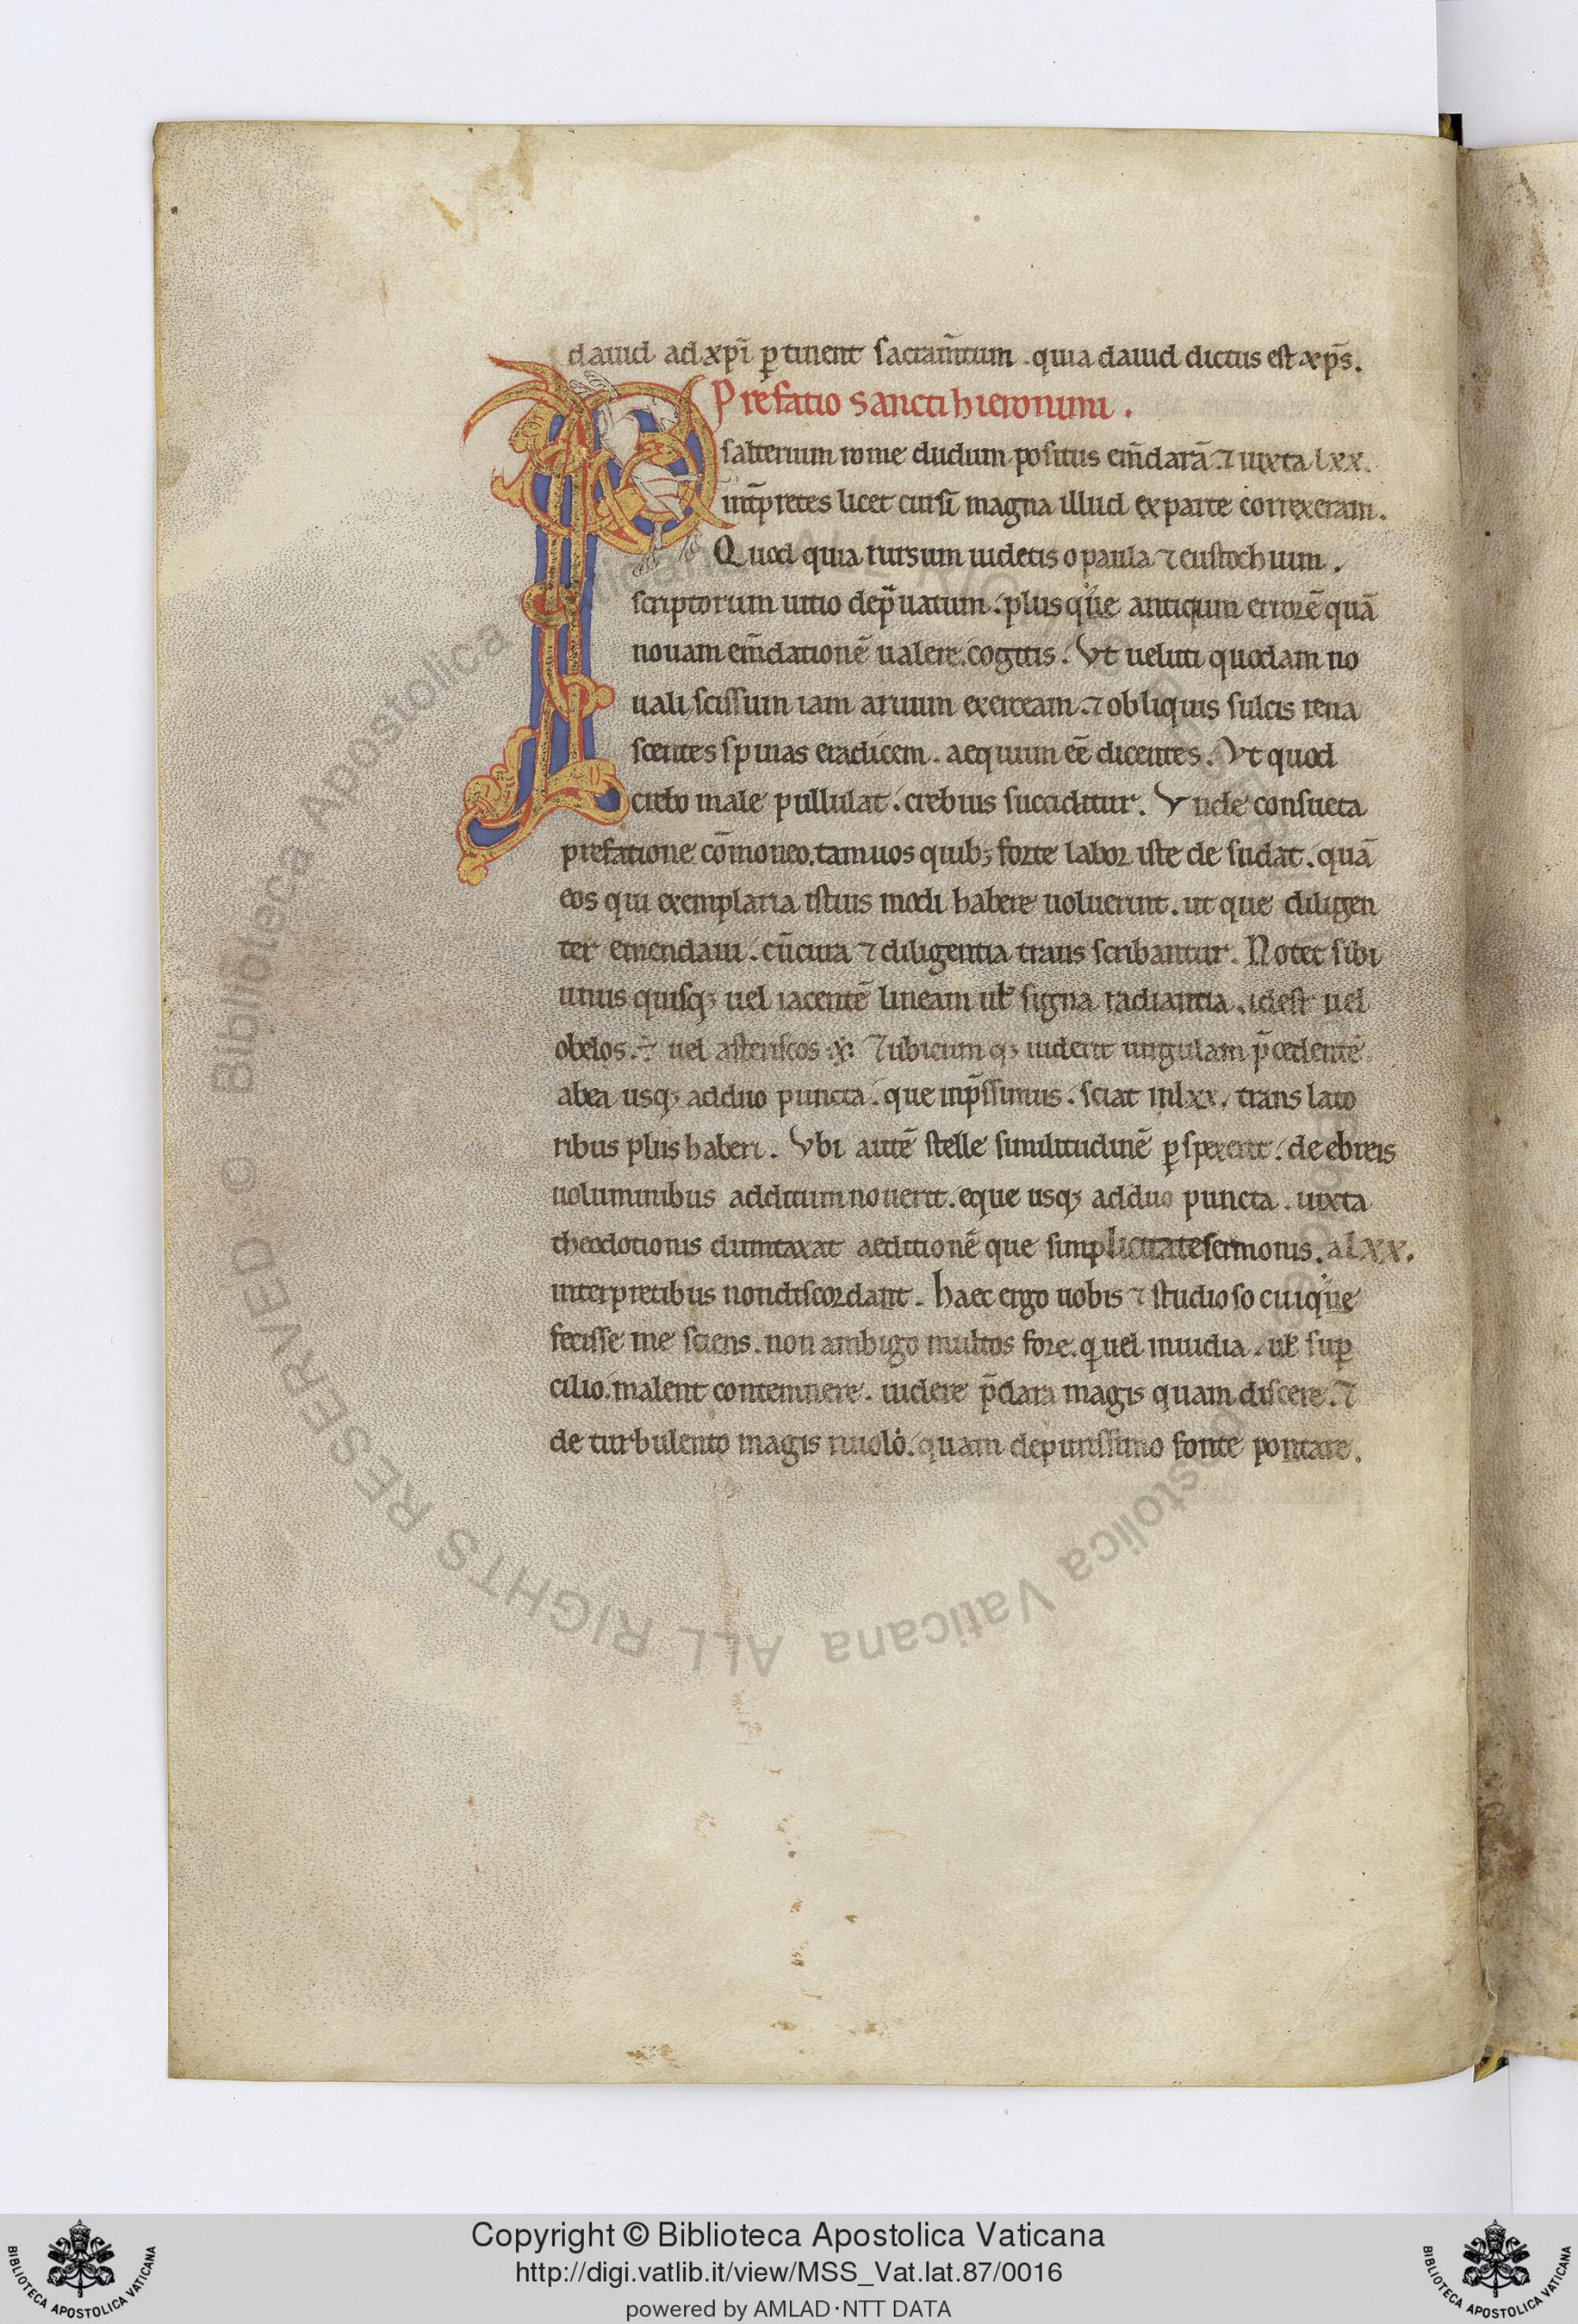 dauid ad xp̄i ꝑtinent sacram̄tum . quia dauid dictus est xp̄s.
Prefatio sancti hieronimi .
Psalterium rome dudum positus em̄darā . ⁊ iuxta lxx.
int̄pretes licet cursī magna illud exparte correxeram.
Quod quia rursum uidetis o paula ⁊ eustochium .
scriptorum uitio dep̄uatum . plus que antiqum errorē quā
nouam em̄dationē ualere cogitis . Vt ueluti quodam no
uali scissum iam aruum exerceam . ⁊ obliquis sulcis rena
scentes spinas eradicem . aequum eē dicentes . Vt quod
crebo male pullulat . crebius succiditur . Vnde consueta
prefatione cōmoneo . tamuos quibꝫ forte labor iste de sudat . quā
eos qui exemplaria istius modi habere uoluerint . ut que diligen
ter emendaui . cūcura ⁊ diligentia trans scribantur . Notet sibi
unus quisqꝫ uel iacentē lineam uƚ signa radiantia . idest uel
obelos . ÷ uel asteriscos ※ ⁊ ubicum qꝫ uiderit uirgulam p̄cedentē
abea usqꝫ adduo puncta . que inp̄ssimus . sciat inlxx. trans lato
ribus plus haberi . Vbi autē stelle similitudinē ꝑspexerit . de ebreis
uoluminibus additum nouerit . eque usqꝫ adduo puncta . iuxta
theodotionis dumtaxat aeditionē que simplicitate sermonis . a lxx.
interpretibus nondiscordant . haec ergo uobis ⁊ studioso cuique
fecisse me sciens . non ambigo multos fore . q̄ uel inuidia . uƚ suꝑ
cilio . malent contemnere . uidere p̄clara magis quam discere . ⁊
de turbulento magis riuolo . quam depurissimo fonte pontare .
Copyright © Biblioteca Apostolica Vaticana
http://digi.vatlib.it/view/MSS_Vat.lat.87/0016
powered by AMLAD·NTT DATA
BIBLIOTECA APOSTOLICA VATICANA
BIBLIOTECA APOSTOLICA VATICANA
© Biblioteca Apostolica Vaticana ALL RIGHTS RESERVED